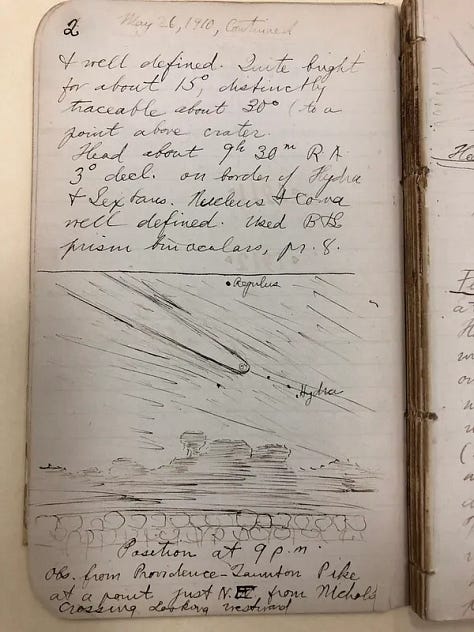 2
May 26, 1910, Continued
& well defined. Quite bright
for about 15°, distinctly
traceable about 30° (to a
point above crater.
Head about 9h 30m R A
3° decl. on border of Hydra
& Sextans. Nucleus & coma
well defined. Used B&L
prism binoculars, pr. 8.
Regulus
Hydra
Position at 9 p.m.
Obs. from Providence-Taunton Pike
at a point just N. from Nichols
Crossing looking westward